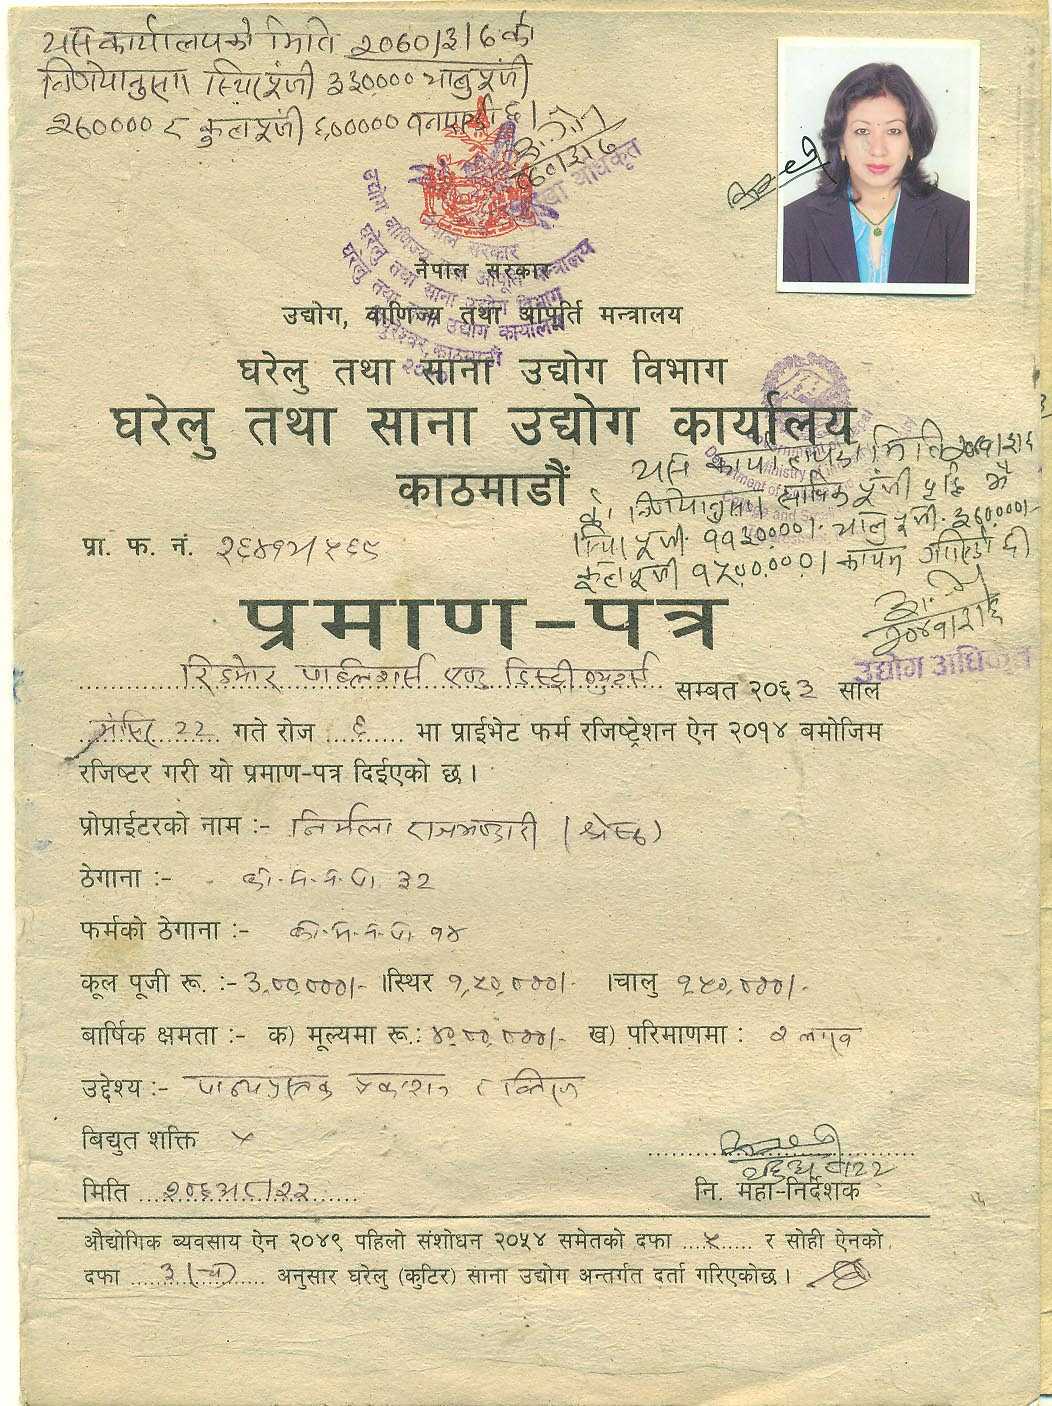 यस कार्यालयको मिति २०६०।३।६ को
निर्णयानुसार स्थिर पूंजी ३३०००० चालु पूंजी
२६०००० र कुल पूंजी ६,०००००
नेपाल सरकार
उद्योग, वाणिज्य तथा आपूर्ति मन्त्रालय
घरेलु तथा साना उद्योग विभाग
घरेलु तथा साना उद्योग कार्यालय
काठमाडौं
यस कार्यालयको मिति
निर्णयानुसार पूंजी वृद्धि भै
स्थिर पूंजी ११३००००।- चालु पूंजी
कुल पूंजी १५,००,०००। कायम
प्रा. फ. नं. २६४१५/५६९
प्रमाण-पत्र
उद्योग अधिकृत
रिडमोर पब्लिशर्स एण्ड डिस्ट्रीब्युटर्स सम्बत २०६३ साल
मंसिर २२ गते रोज ६ भा प्राईभेट फर्म रजिष्ट्रेशन ऐन २०१४ बमोजिम
रजिष्टर गरी यो प्रमाण-पत्र दिईएको छ।
प्रोप्राईटरको नाम :- निर्मला राजभण्डारी (श्रेष्ठ)
ठेगाना :- का.म.न.पा. ३२
फर्मको ठेगाना :- का.म.न.पा. १४
कूल पूजी रू. :- ३,००,०००।- ।स्थिर १,५०,०००।- ।चालु १५०,०००।-
बार्षिक क्षमता :- क) मूल्यमा रू.: ४०,००,०००।- ख) परिमाणमा : २ लाख
उद्देश्य :- पाठ्यपुस्तक प्रकाशन र वितरण
बिद्युत शक्ति ×
मिति २०६३।८।२२ नि. महा-निर्देशक
औद्योगिक ब्यवसाय ऐन २०४९ पहिलो संशोधन २०५४ समेतको दफा ५ र सोही ऐनको
दफा ३ अनुसार घरेलु (कुटिर) साना उद्योग अन्तर्गत दर्ता गरिएकोछ।